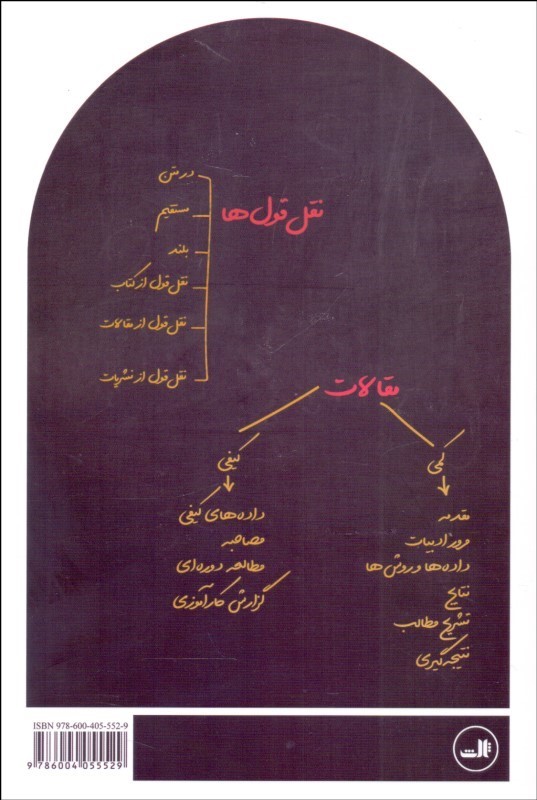 نقل قول ها
در متن
مستقیم
بلند
نقل قول از کتاب
نقل قول از مقالات
نقل قول از نشریات
مقالات
کمی
مقدمه
مرور ادبیات
داده ها و روش ها
نتایج
تشریح مطالب
نتیجه گیری
کیفی
داده های کیفی
مصاحبه
مطالعه دوره ای
گزارش کارآموزی
ISBN 978-600-405-552-9
9 786004 055529
ثالث